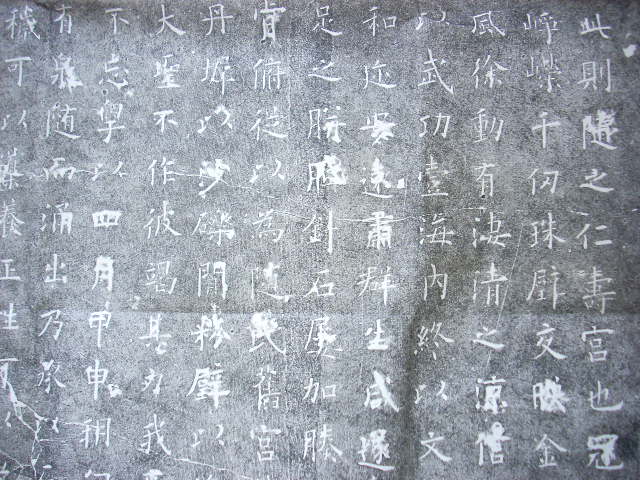 此則隨之仁壽宮也冠
崢嶸千仞珠壁交映金
風徐動有淒清之凉信
以武功壹海内終以文
和迩安遠肅群生咸遂
足之胝針石屢加腠
肯俯從以為随氏舊宮
丹墀以沙礫間粉壁以
大聖不作彼竭其力我
不忘學以四月甲申朔
有泉随而涌出乃承以
穢可以導養正性可